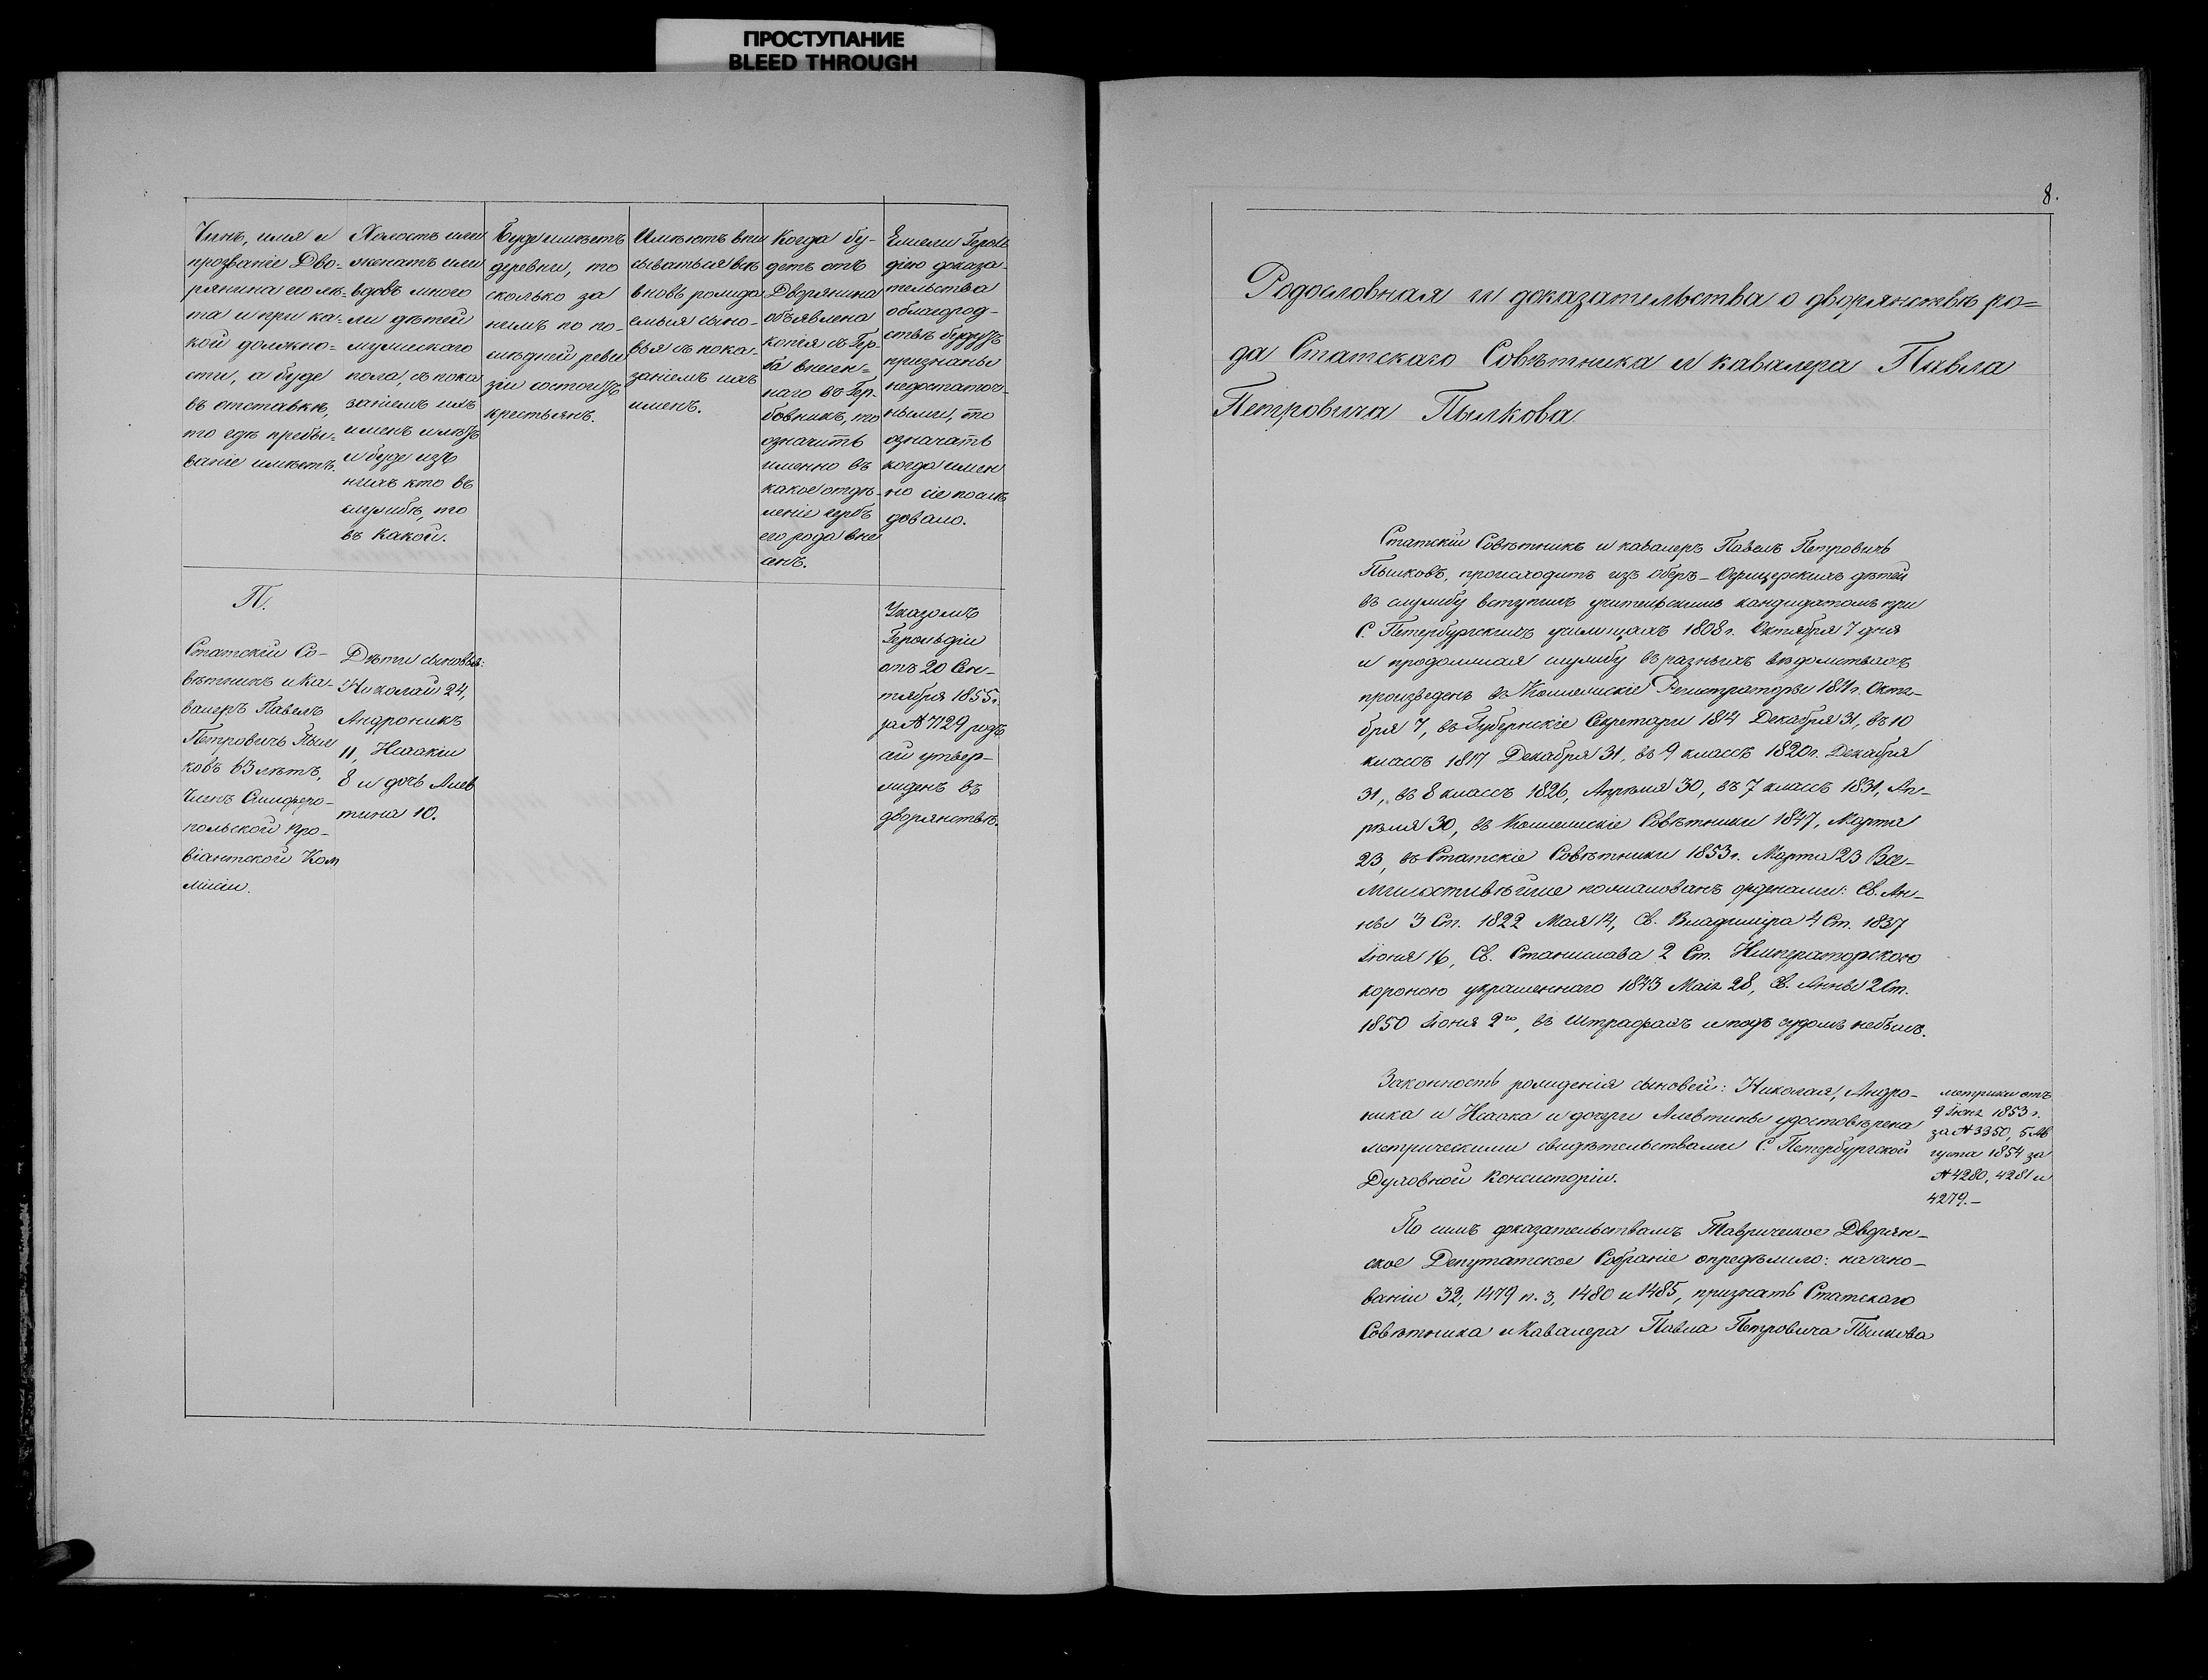 ПРОСТУПАНИЕ
BLEED THROUGH
Чинъ, имя и
прозваніе Дво=
рянина его лѣ=
та и при ка=
кой должно=
сти, а буде
въ отставкѣ,
то гдѣ пребы-
ваніе имѣетъ.
Холостъ или
женатъ или
вдовъ много
ли дѣтей
мужескаго
пола, съ пока
заніемъ ихъ
именъ и лѣтъ
и буде изъ
нихъ кто въ
службѣ, то
въ какой.
Буде имѣетъ
деревни, то
сколько за
нимъ по по-
слѣдней реви
зіи состоитъ
крестьянъ.
Имѣютъ впи
сываться всѣ
вновь рожда
емыя сыно-
вья съ пока-
заніемъ ихъ
именъ.
Когда бу-
детъ отъ
Дворянина
объявлена
копія съ Гер-
ба внесен=
наго въ Гер-
бовникъ, то
означить
именно въ
какое отдѣ-
леніе гербъ
его рода вне
сенъ.
Ежели Героль
діею доказа-
тельства
о благород-
ствѣ будутъ
признаны
недостаточ-
ными, то
означать
когда имен
но сіе послѣ
довало.
П.
Статскій Со-
вѣтникъ и Ка-
валеръ Павелъ
Петровичъ Пыл
ковъ 63 лѣтъ,
Членъ Симферо-
польской Про-
віантской Ком
мисіи.
Дѣти сыновья:
Николай 24,
Андроникъ
11, Исаакій
8 и дочь Алев
тина 10.
Указомъ
Герольдіи
отъ 20 Сен-
тября 1855 г.
за № 7129 родъ
сей утвер-
жденъ въ
дворянствѣ.
8.
Родословная и доказательства о дворянствѣ ро=
да Статскаго Совѣтника и кавалера Павла
Петровича Пылкова.
Статскій Совѣтникъ и кавалеръ Павелъ Петровичъ
Пылковъ, происходитъ изъ Оберъ-Офицерскихъ дѣтей
въ службу вступилъ учительскимъ кандидатомъ при
С. Петербургскихъ училищахъ 1808 г. Октября 7 дня
и продолжая службу въ разныхъ вѣдомствахъ
произведенъ въ Коллежскіе Регистраторы 1811 г. Октя-
бря 7, въ Губернскіе Секретари 1814 Декабря 31, въ 10
классъ 1817 Декабря 31, въ 9 классъ 1820 г. Декабря
31, въ 8 классъ 1826, Апрѣля 30, въ 7 классъ 1831, Ап-
рѣля 30, въ Коллежскіе Совѣтники 1847, Марта
23, въ Статскіе Совѣтники 1853 г. Марта 23 Все-
милостивѣйше пожалованъ орденами: Св. Ан-
ны 3 Ст. 1822 Мая 14, Св. Владиміра 4 Ст. 1837
Іюня 16, Св. Станислава 2 Ст. Императорскою
короною украшеннаго 1843 Маія 28, Св. Анны 2 Ст.
1850 Іюня 2го, въ штрафахъ и подъ судомъ небылъ.
Законность рожденія сыновей: Николая, Андро-
ника и Исаака и дочери Алевтины удостовѣрена
метрическими свидѣтельствами С. Петербургской
Духовной Консисторіи.
метрики отъ
9 Іюня 1853 г.
за № 3350, 5 Ав
густа 1854 за
№ 4280, 4281 и
4279.-
По симъ доказательствамъ Таврическое Дворян-
ское Депутатское Собраніе опредѣлило: на осно-
ваніи 32, 1479 п. 3, 1480 и 1485, признать Статскаго
Совѣтника и Кавалера Павла Петровича Пылкова